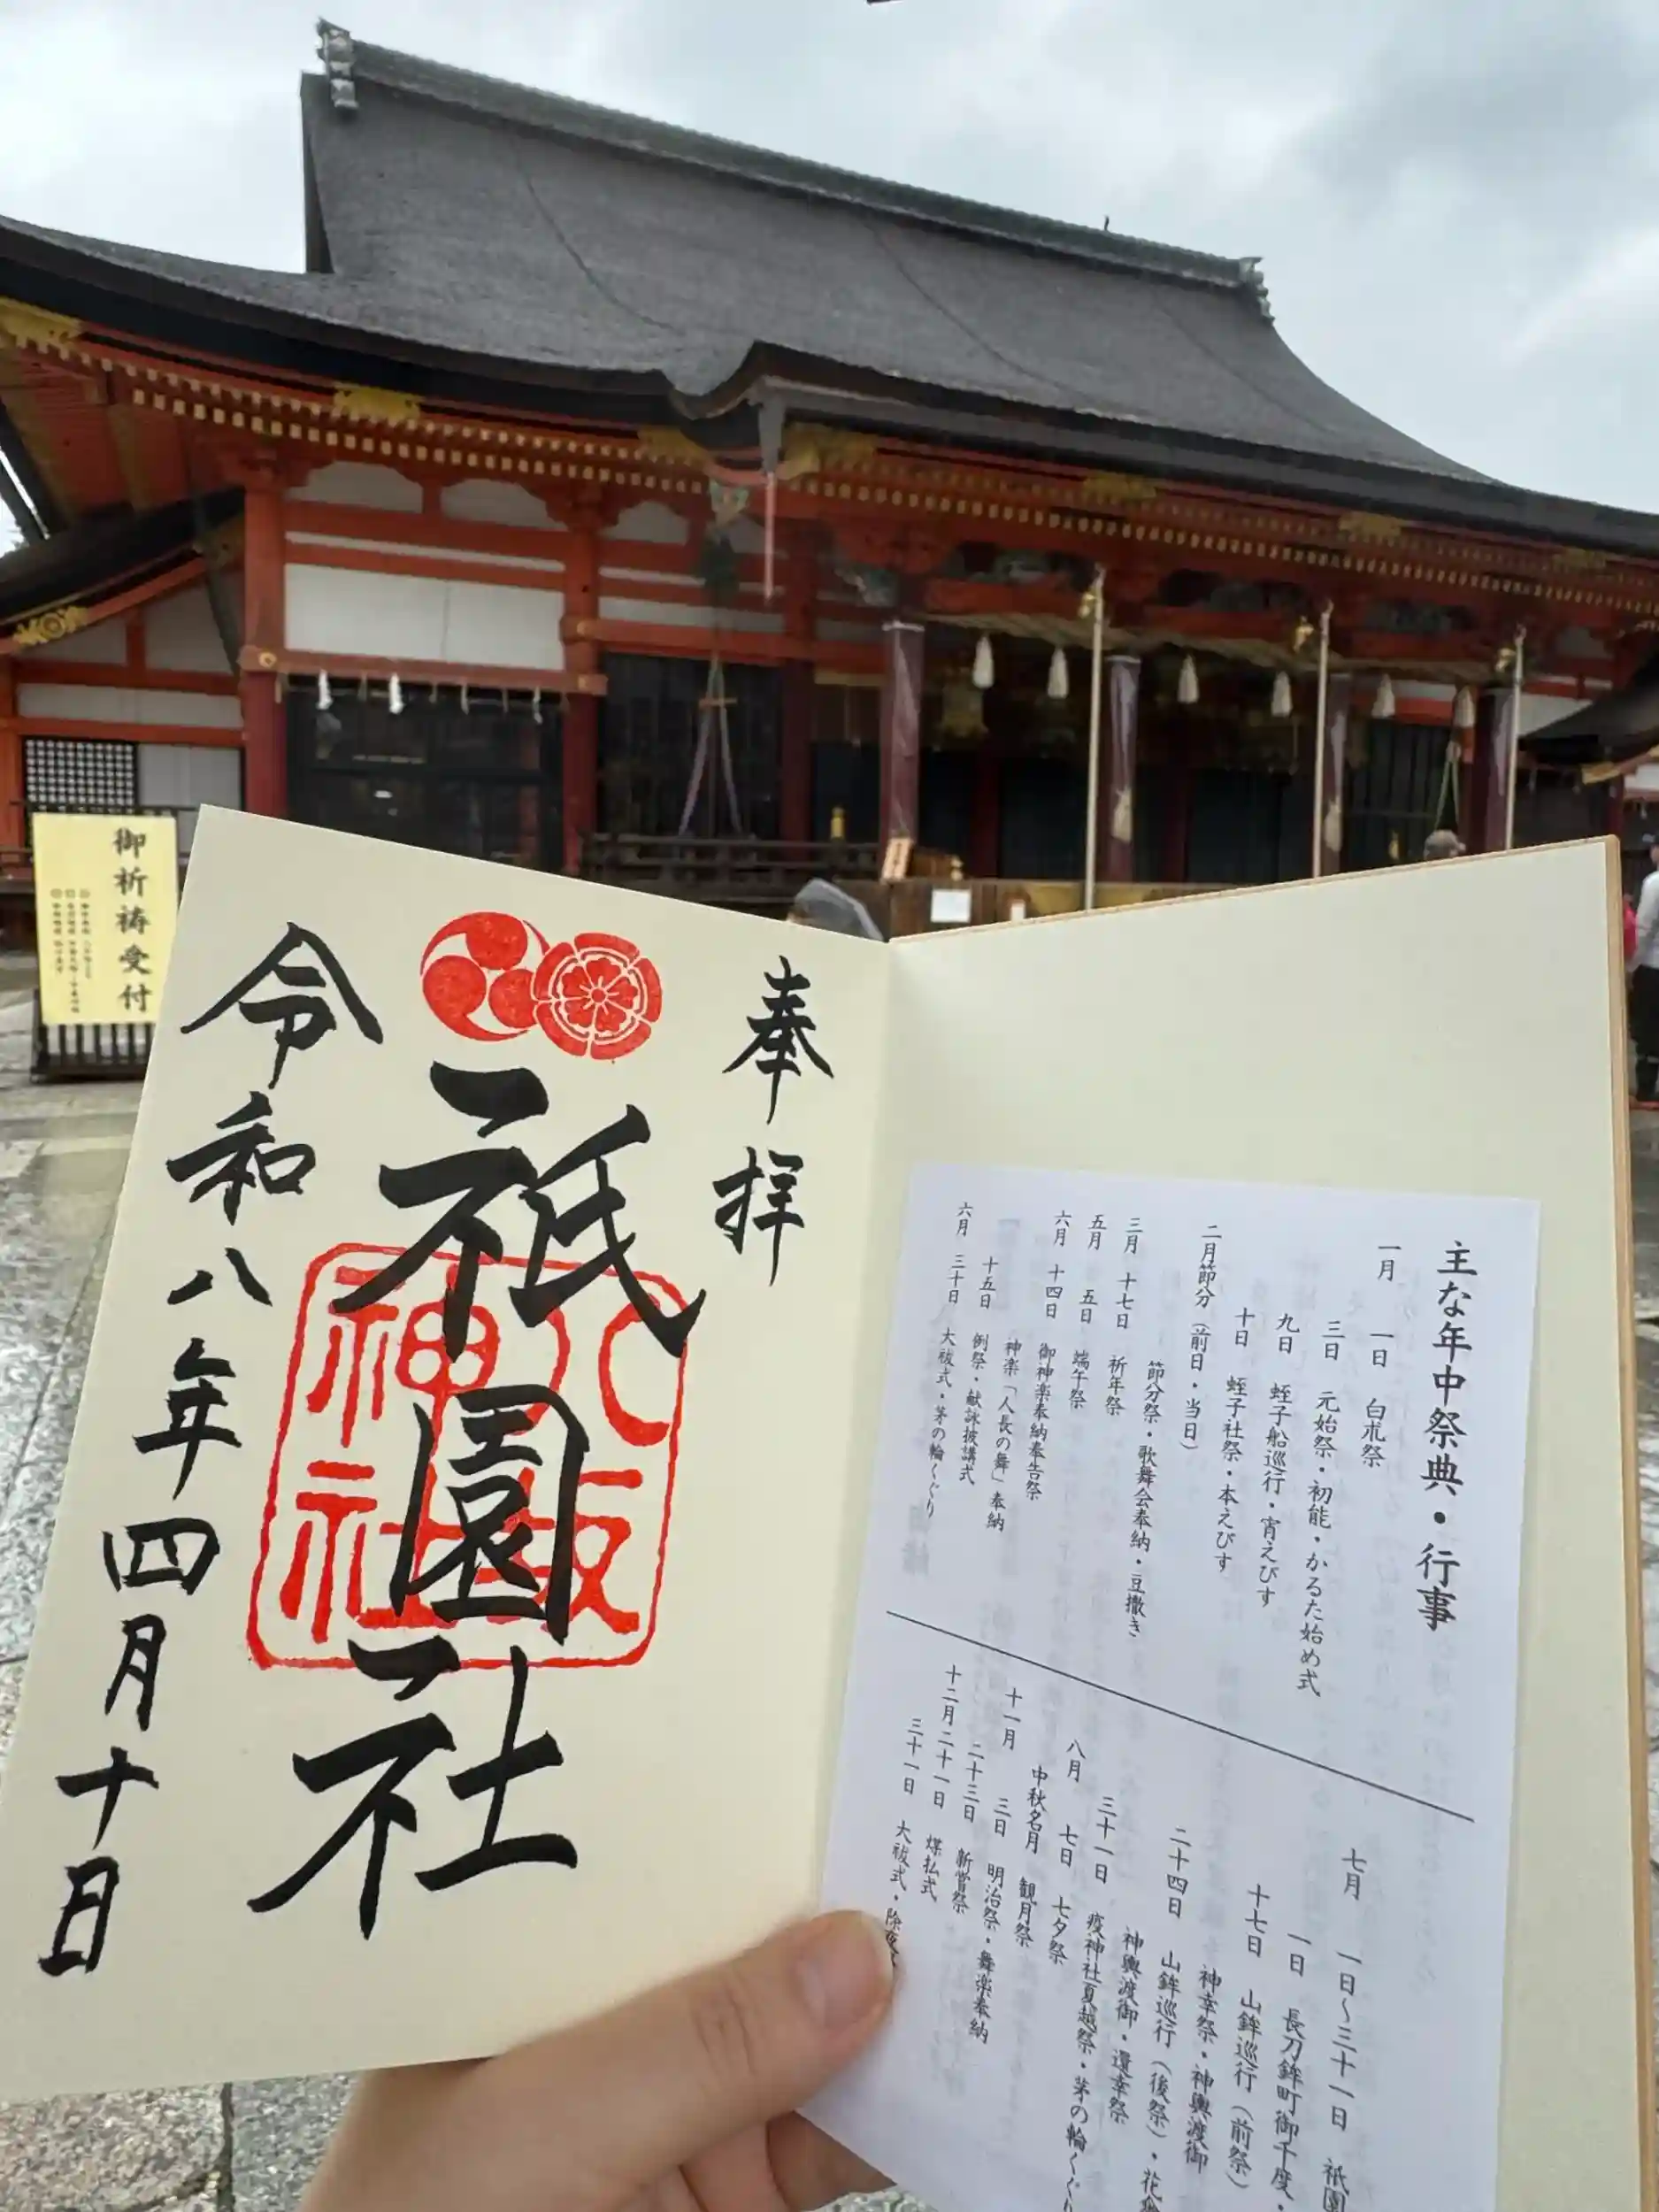 御祈祷受付
奉拝
祇園社
八坂神社
令和八年四月十日
主な年中祭典・行事
一月 一日 白朮祭
三日 元始祭・初能・かるた始め式
九日 蛭子船巡行・宵えびす
十日 蛭子社祭・本えびす
二月節分(前日・当日)
節分祭・歌舞会奉納・豆撒き
三月 十七日 祈年祭
五月 五日 端午祭
六月 十四日 御神楽奉納奉告祭
神楽「人長の舞」奉納
十五日 例祭・献詠披講式
六月 三十日 大祓式・茅の輪くぐり
七月 一日~三十一日 祇園
一日 長刀鉾町御千度・
十七日 山鉾巡行(前祭)
神幸祭・神輿渡御
二十四日 山鉾巡行(後祭)・花傘
神輿渡御・還幸祭
三十一日 疫神社夏越祭・茅の輪くぐり
八月 七日 七夕祭
中秋名月 観月祭
十一月 三日 明治祭・舞楽奉納
二十三日 新嘗祭
十二月二十一日 煤払式
三十一日 大祓式・除夜